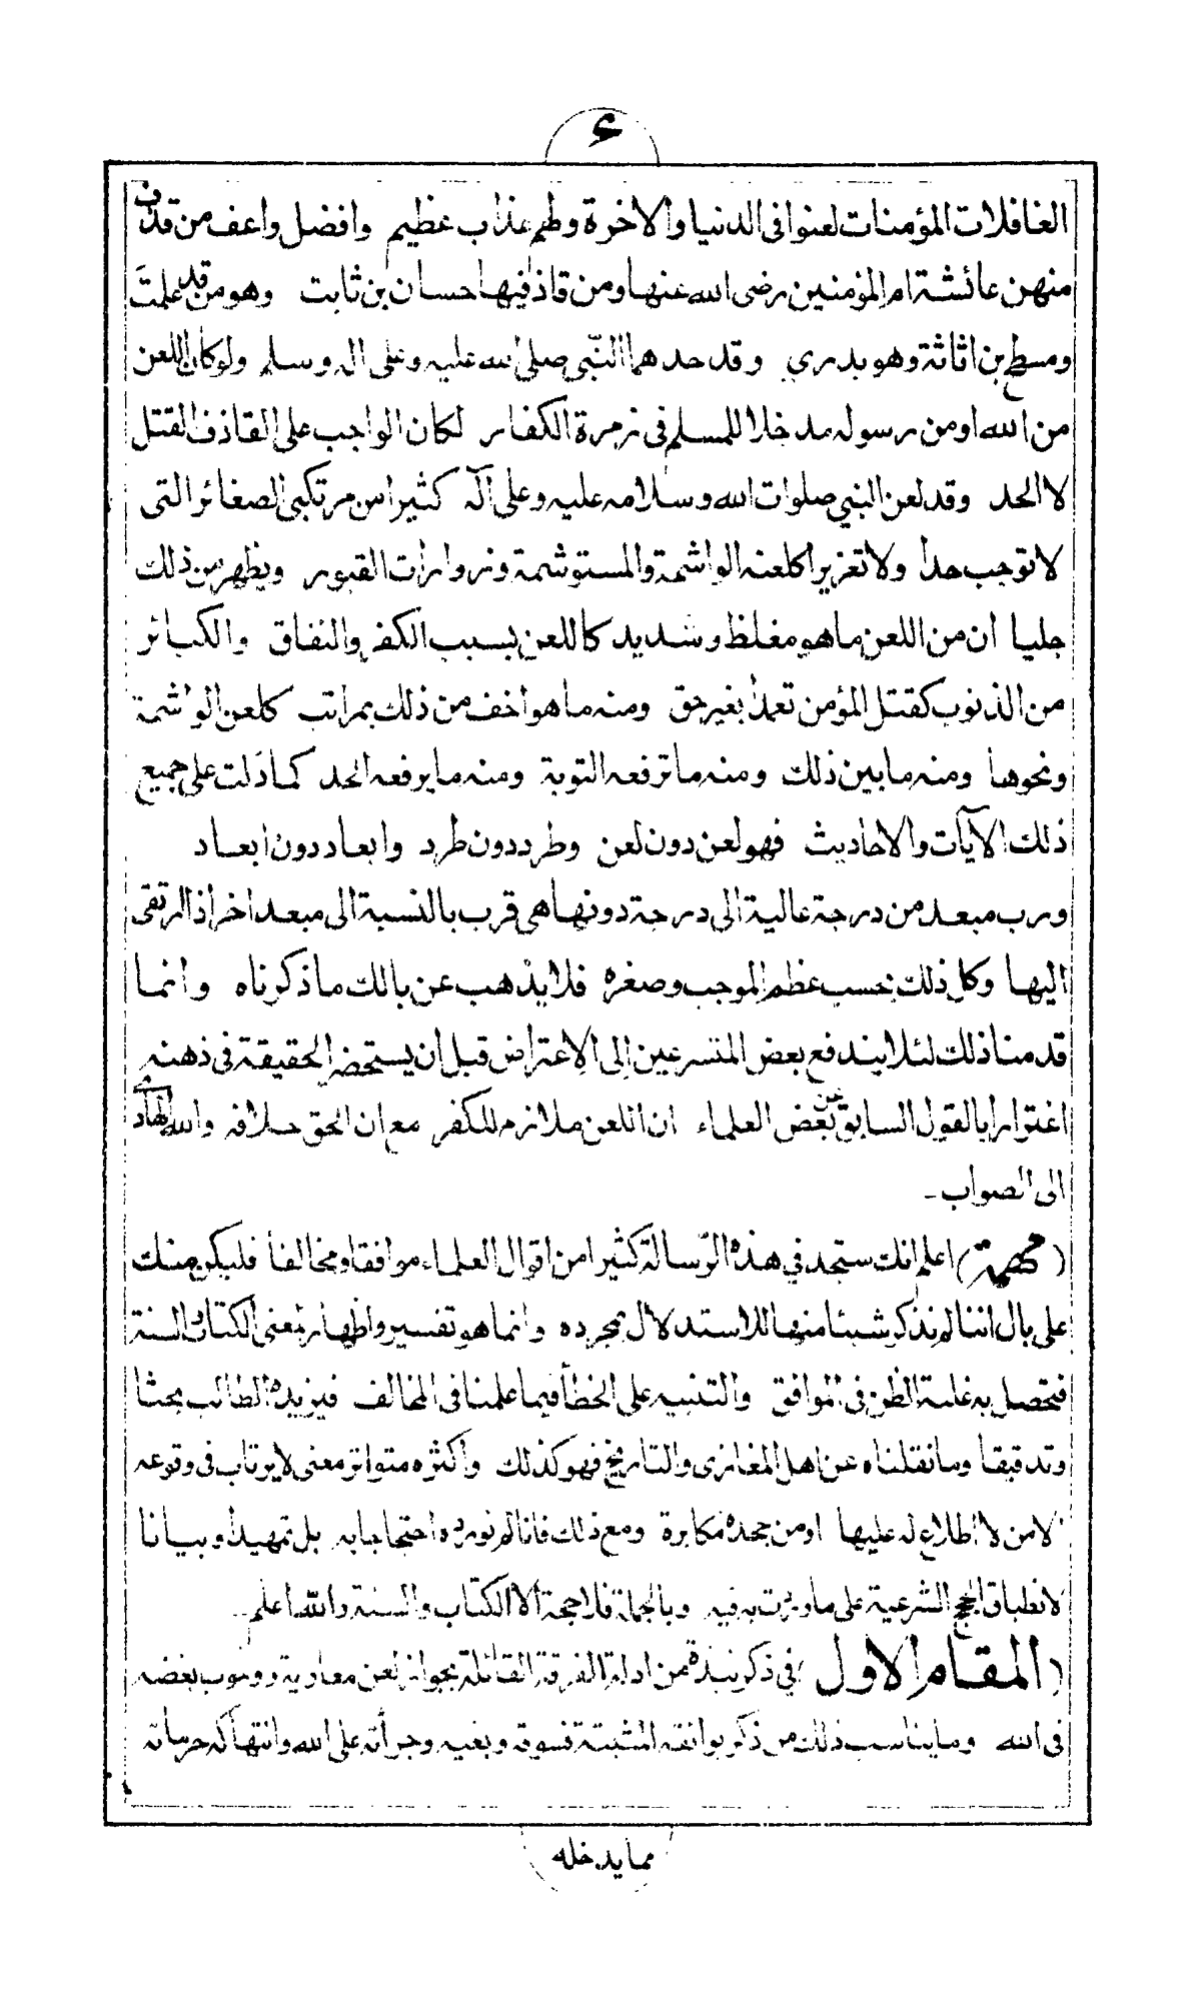 ۴
الغافلات المؤمنات لعنوا فى الدنيا والاخرة ولهم عذاب عظيم وافضل واعف من قذف
منهن عائشة ام المؤمنين رضى الله عنها ومن قاذفيها حسان بن ثابت وهو من قد علمت
ومسطح بن اثاثة وهو بدرى وقد حدهما النّبى صلى الله عليه وعلى اله وسلم ولو كان اللعن
من الله او من رسوله مدخلا للمسلم فى زمرة الكفار لكان الواجب على القاذف القتل
لا الحد وقد لعن النبي صلوات الله وسلامه عليه وعلى آله كثيرا من مرتكبى الصغائر التى
لا توجب حداً ولا تعزيرا كلعنه الواشمة والمستوشمة وزوارات القبور ويظهر من ذلك
جليا ان من اللعن ما هو مغلظ وشديد كاللعن بسبب الكفر والنفاق والكبائر
من الذنوب كقتل المؤمن تعمداً بغير حق ومنه ما هو اخف من ذلك بمراتب كلعن الواشمة
ونحوها ومنه ما بين ذلك ومنه ما ترفعه التوبة ومنه ما يرفعه الحد كما دَلت على جميع
ذلك الآيات والاحاديث فهو لعن دون لعن وطرد دون طرد وابعاد دون ابعاد
ورب مبعد من درجة عالية الى درجة دونها هى قرب بالنسبة الى مبعد اخر اذا ارتقى
اليها وكل ذلك بحسب عظم الموجب وصغره فلا يذهب عن بالك ما ذكرناه وانما
قدمنا ذلك لئلا يندفع بعض المتسرعين إلى الاعتراض قبل ان يستحضر الحقيقة فى ذهنه
اغترارا بالقول السابق عن بعض العلماء ان اللعن ملازم للكفر مع ان الحق خلافه والله الهادى
الى الصواب -
(مهمة) اعلم انك ستجد في هذه الرّسالة كثيرا من اقوال العلماء موافقا ومخالفاً فليكن منك
على بال اننا لم نذكر شيئا منها للاستدلال بمجرده وانما هو تفسير واظهار لمعنى الكتاب والسنة
فتحصل به غلبة الظن فى الموافق والتنبيه على الخطأ فيما علمنا فى المخالف فيزيد الطالب بحثا
وتدقيقا وما نقلناه عن اهل المغازى والتاريخ فهو كذلك واكثره متواتر معنى لا يرتاب فى وقوعه
الا من لا اطلاع له عليها او من جحده مكابرة ومع ذلك فانا لم نورده احتجاجا به بل تمهيدا وبيانا
لانطباق الحجج الشرعية على ما وردت به فيه وبالجملة فلا حجة الا الكتاب والسنة والله اعلم -
(المقام الاول) في ذكر نبذة من ادلة الفرقة القائلة بجواز لعن معاوية ووجوب بغضه
فى الله وما يناسب ذلك من ذكر بوائقه المثبتة فسوقه وبغيه وجرأته على الله وانتهاكه حرماته
مما يدخله